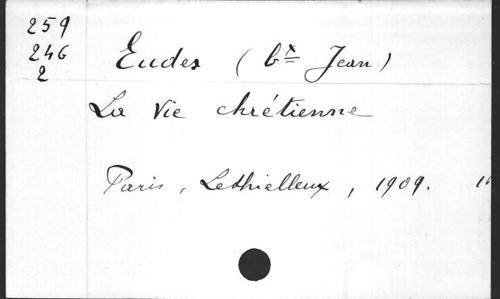 259
246
2
Eudes (bx Jean)
La Vie chrétienne
Paris, Lethielleux, 1909.